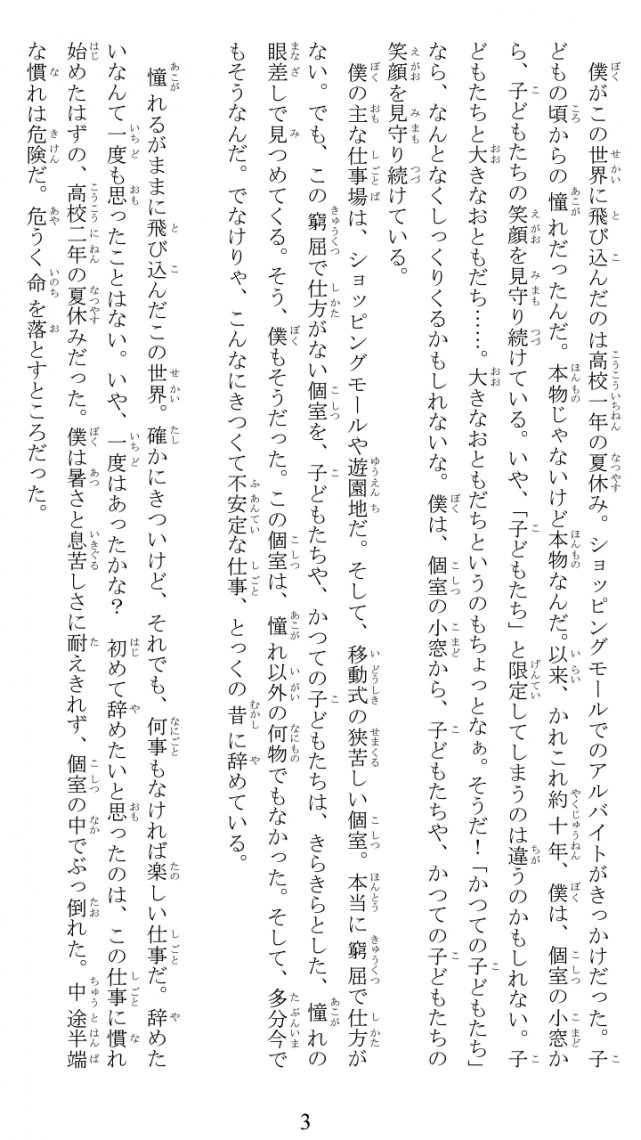 僕がこの世界に飛び込んだのは高校一年の夏休み。ショッピングモールでのアルバイトがきっかけだった。子
どもの頃からの憧れだったんだ。本物じゃないけど本物なんだ。以来、かれこれ約十年、僕は、個室の小窓か
ら、子どもたちの笑顔を見守り続けている。いや、「子どもたち」と限定してしまうのは違うのかもしれない。子
どもたちと大きなおともだち……。大きなおともだちというのもちょっとなぁ。そうだ！「かつての子どもたち」
なら、なんとなくしっくりくるかもしれないな。僕は、個室の小窓から、子どもたちや、かつての子どもたちの
笑顔を見守り続けている。
僕の主な仕事場は、ショッピングモールや遊園地だ。そして、移動式の狭苦しい個室。本当に窮屈で仕方が
ない。でも、この窮屈で仕方がない個室を、子どもたちや、かつての子どもたちは、きらきらとした、憧れの
眼差しで見つめてくる。そう、僕もそうだった。この個室は、憧れ以外の何物でもなかった。そして、多分今で
もそうなんだ。でなけりゃ、こんなにきつくて不安定な仕事、とっくの昔に辞めている。
憧れるがままに飛び込んだこの世界。確かにきついけど、それでも、何事もなければ楽しい仕事だ。辞めた
いなんて一度も思ったことはない。いや、一度はあったかな？　初めて辞めたいと思ったのは、この仕事に慣れ
始めたはずの、高校二年の夏休みだった。僕は暑さと息苦しさに耐えきれず、個室の中でぶっ倒れた。中途半端
な慣れは危険だ。危うく命を落とすところだった。
3